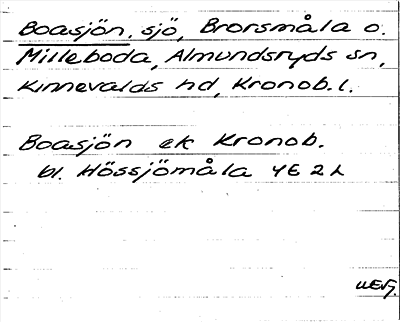 Boasjön, sjö, Brorsmåla o.
Milleboda, Almundsryds sn,
Kinnevalds hd, Kronob. l.
Boasjön ek Kronob.
bl. Hössjömåla 4E 2h